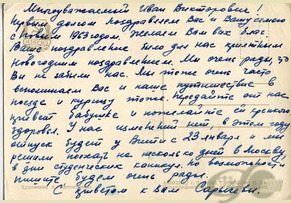 Многоуважаемый Иван Викторович!
Первым долгом поздравляем Вас и Вашу семью
с Новым 1963 годом. Желаем Вам всех благ.
Ваше поздравление было для нас приятным
новогодним поздравлением. Мы очень рады, что
Вы не забыли нас. Мы тоже очень часто
вспоминаем Вас и наше путешествие в
поезде и курицу тоже. Передайте от нас
привет бабушке и пожелайте ей крепкого
здоровья. У нас в этом году
отпуск будет у с 23 января и мы
решили поехать на несколько дней в Москву
в дни студенческих каникул. По возможности
пишите будем очень рады.
С приветом к Вам